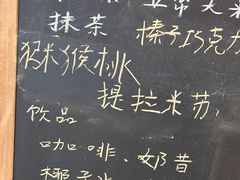 抹茶 榛子巧克力
猕猴桃
提拉米苏,
饮品
咖啡、奶昔